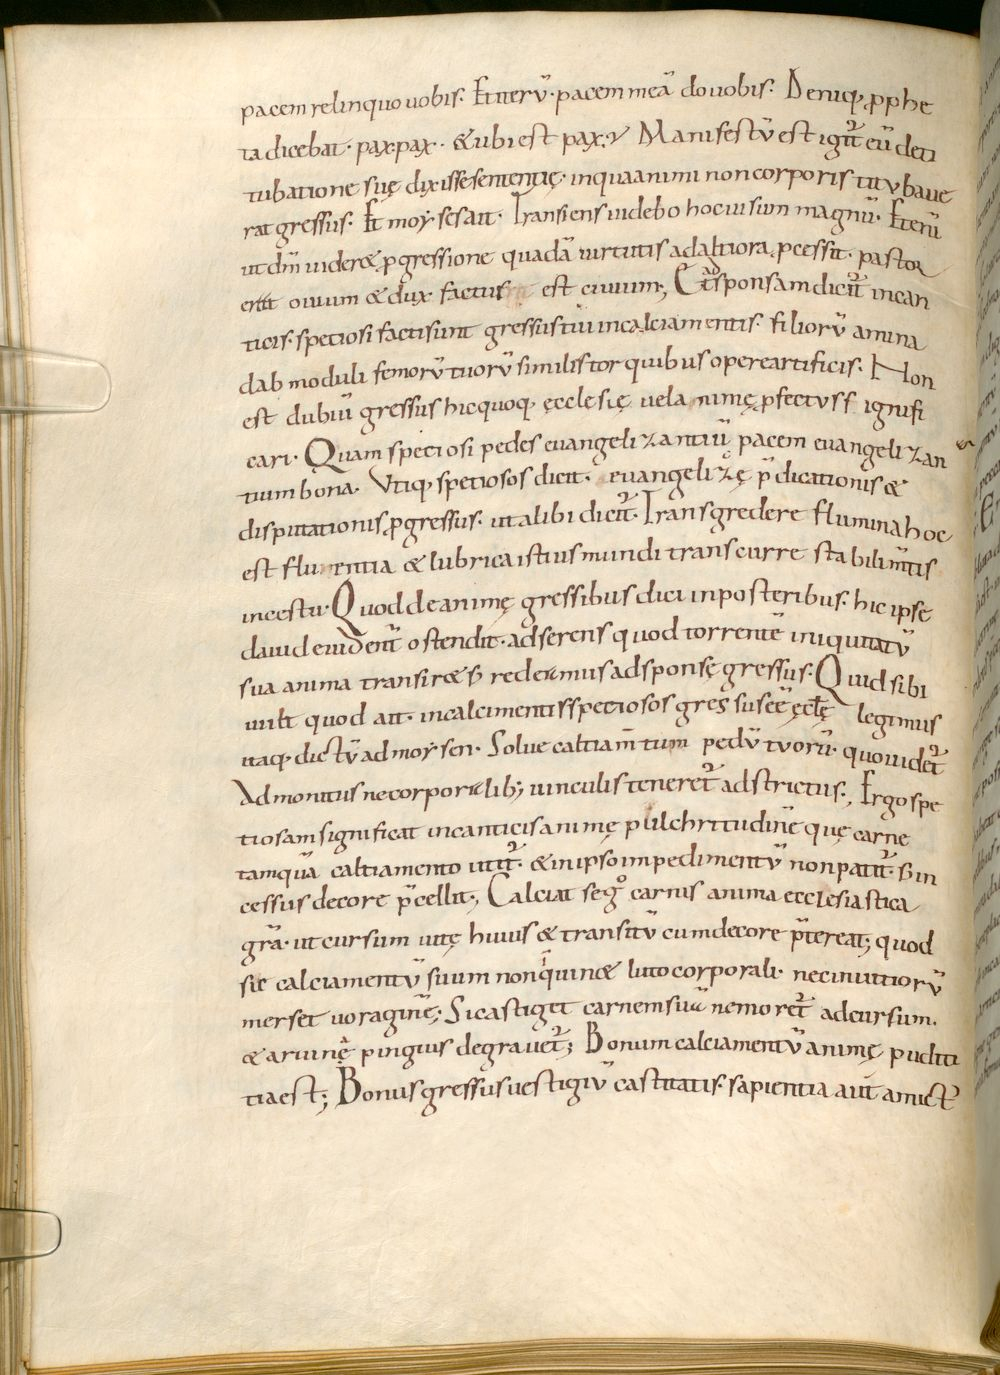 pacem relinquo uobis. Et iterũ. pacem meã do uobis. Deniq; ꝓphe
ta dicebat. pax. pax. & ubi est pax? Manifestũ est igit̃ eũ de ti
tubatione suę dixisse sententię. in qua animi non corporis titubaue
rat gressus. Et moyses ait. Transiens uidebo hoc uisum magnũ. Et erũ
ut dm̃ uider& ꝓgressione quadã uirtutis ad altiora ꝓcessit. pastor
erat ouium & dux factus est ouium; Et sponsam dicit̃ in can
ticis. spetiosi facti sunt gressus tui in calciamentis. filiorũ amina
dab moduli femorũ tuorũ similis torquibus opere artificis. Non
est dubiũ gressus hic quoq; ęcclesię uel animę ꝓfectus signifi
cari. Quam speciosi pedes euangelizantiũ pacem euangelizan
tium bona. Utiq; spetiosos dicit. euangelizę p̃dicationis &
disputationis ꝓgressus. ut alibi dicit̃. Transgredere flumina hoc
est fluentia & lubrica istius mundi transcurre stabilim̃tis
incestu. Quod de animę gressibus dici in posteribus. hic ipse
dauid euident̃ ostendit. adserens quod torrentẽ iniquitatũ
sua anima transir& s; redeamus ad sponsę gressus. Quid sibi
uult quod ait. in calcimentis spetiosos gressus eẽ ęctę legimus
itaq; dictũ ad moysen. Solue caltiam̃tum pedũ tuorũ. quo uidet̃
Admonitus ne corporalib; uinculis teneret̃ adstrictus; Ergo spe
tiosam significat in canticis animę pulchritudinẽ quę carne
tamquã caltiamento utit̃. & in ipso impedimentũ non patit̃. s; in
cessus decore p̃cellit; Calciat se gͦ carnis anima ecclesiastica
gr̃a. ut cursum uitę huius & transitũ cum decore p̃tereat; quod
sic calciamentũ suum non iquin& luto corporali. nec in uitiorũ
merset uoraginẽ; Si castiget carnem suã ne moret̃ ad cursum.
& aruinę pinguis degrauet̃; Bonum calciamentũ animę puditi
tia est; Bonus gressus uestigiũ castitatis. sapientia aut̃ amict̃